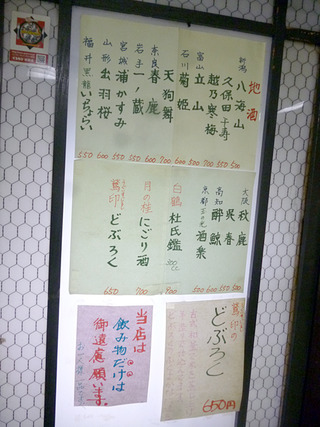 地酒
新潟 八海山 500
久保田千寿 550
越乃寒梅 700
富山 立山 500
石川 菊姫 600
天狗舞 700
奈良 春鹿 600
岩手 一ノ蔵 550
宮城 浦かすみ 550
山形 出羽桜 600
福井 黒龍いちょらい 550
大阪 秋鹿
呉春
高知 酔鯨
京都 酒楽
白鶴 杜氏鑑 300cc
月の桂 にごり酒 700
どぶろく 650
印の
どぶろく
650円
当店は
飲み物だけは
御遠慮願います。